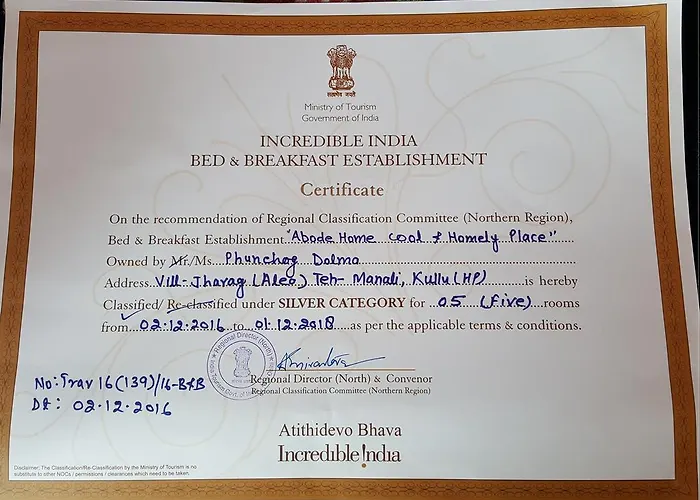 सत्यमेव जयते
Ministry of Tourism
Government of India
INCREDIBLE INDIA
BED & BREAKFAST ESTABLISHMENT
Certificate
On the recommendation of Regional Classification Committee (Northern Region),
Bed & Breakfast Establishment "Abode Home cool & Homely Place"
Owned by Mr./Ms. Phunchog Dolma
Address Vill-Jharag (Aleo) Teh- Manali, Kullu (HP) is hereby
Classified/ Re-classified under SILVER CATEGORY for 05 (five) rooms
from 02.12.2016 to 01.12.2018 as per the applicable terms & conditions.
Regional Director (North) & Convenor
Regional Classification Committee (Northern Region)
No: Trav 16(139)/16-B&B
Dt: 02.12.2016
Atithidevo Bhava
Incredible !ndia
Disclaimer: The Classification/Re-Classification by the Ministry of Tourism is no
substitute to other NOCs / permissions / clearances which need to be taken.